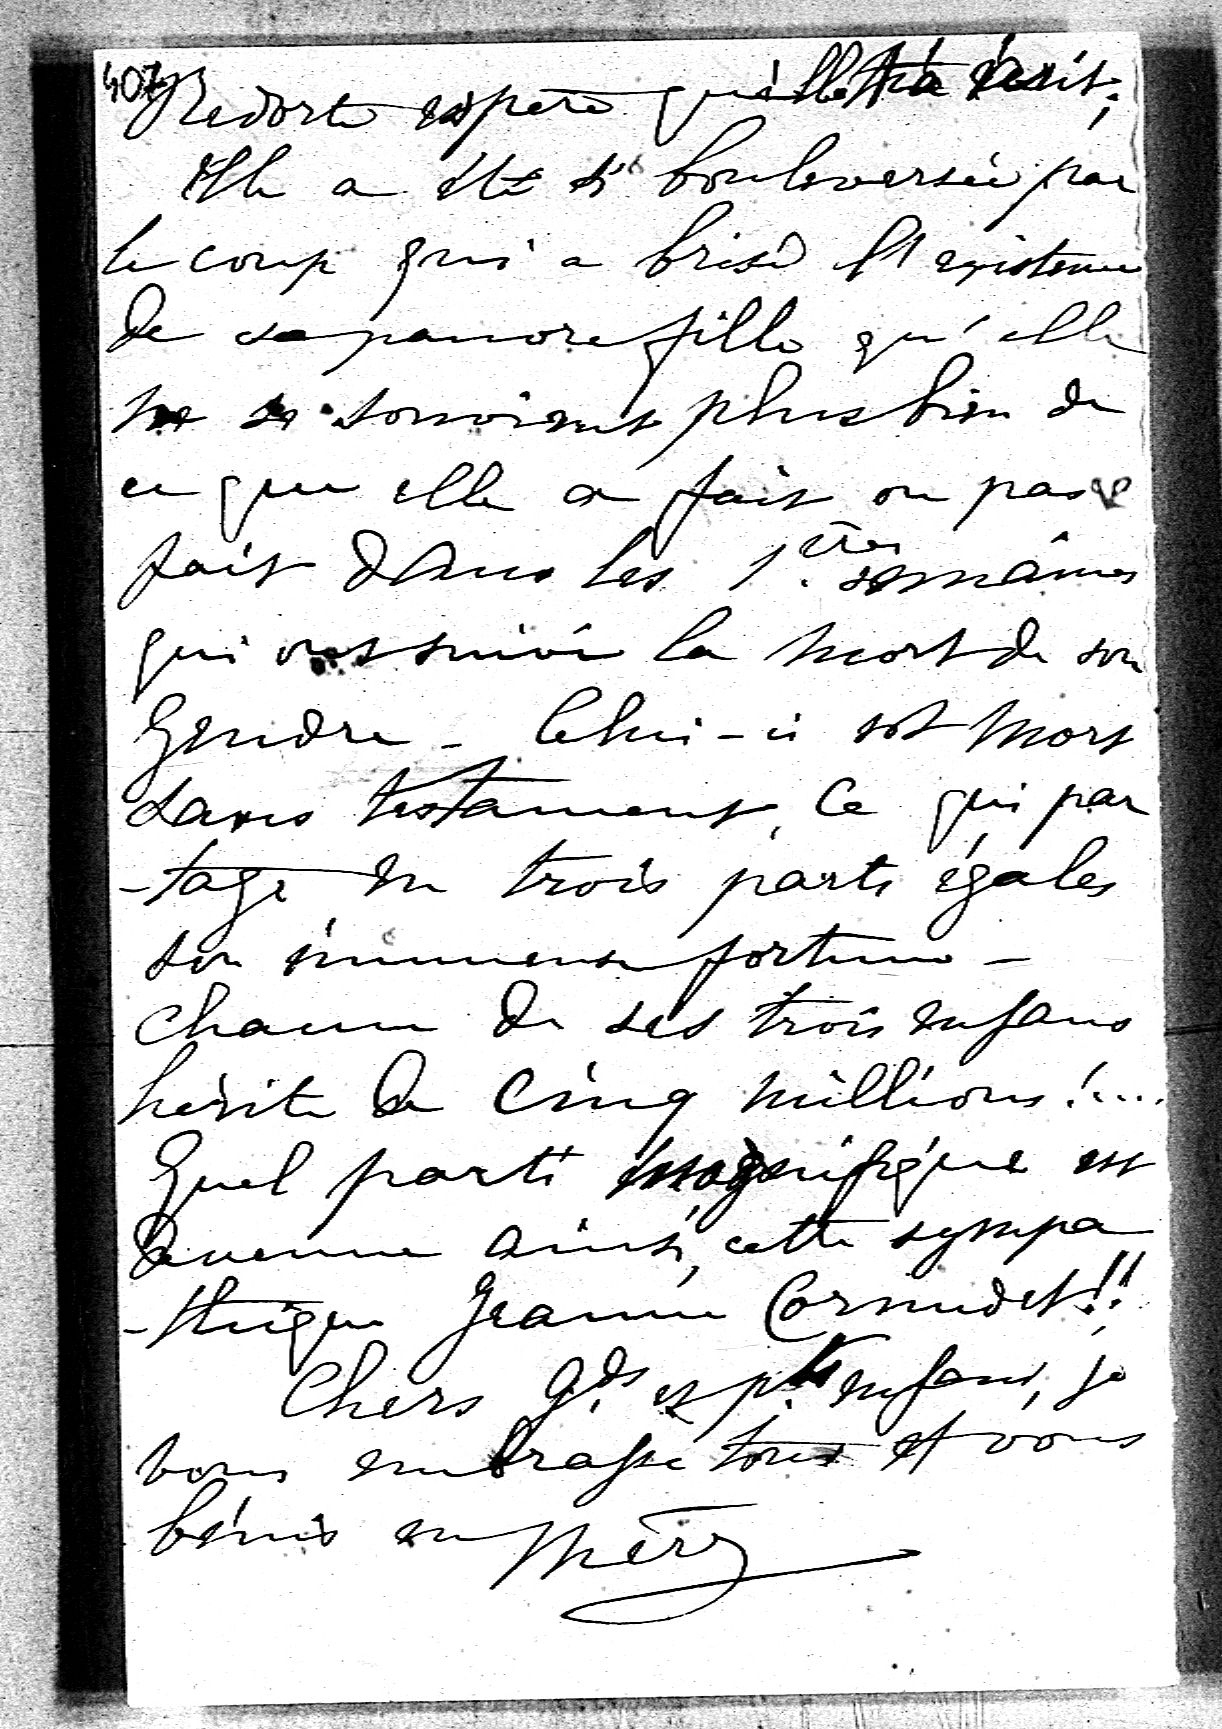 407
Redorte espère qu'elle t'a écrit;
Elle a été si bouleversée par
le coup qui a brisé l'existence
de sa pauvre fille qu'elle
ne se souvient plus bien de
ce que elle a fait ou pas
fait dans les 1.ères semaines
qui ont suivi la mort de son
Gendre _ Celui-ci est mort
sans testament, ce qui par
-tage en trois parts égales
son immense fortune _
Chacun de ses trois enfans
hérite de Cinq millions!....
Quel parti magnifique est
devenue ainsi, cette sympa
-thique Jeanne Cornudet!!
Chers G.ds et p.ts enfans, je
vous embrasse tous et vous
bénis en Mère